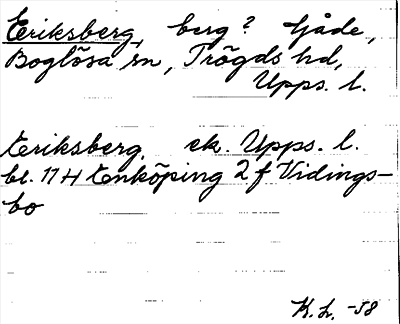 Eriksberg, berg? Gåde,
Boglösa sn, Trögds hd,
Upps. l.
Eriksberg, ek. Upps. l.
bl. 11 H Enköping 2 f Vidings-
bo
K.L. -58